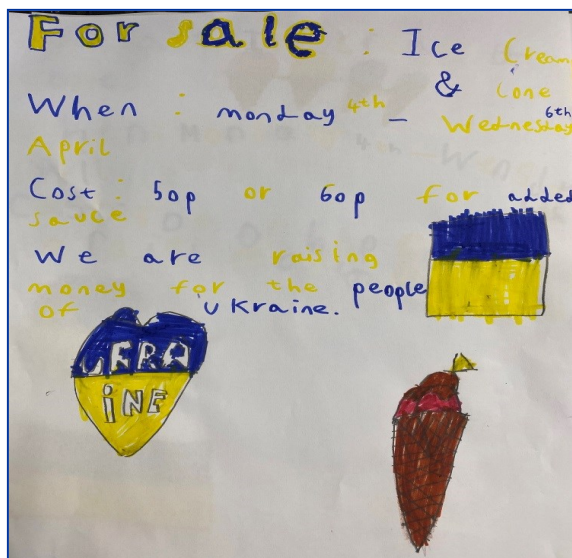 For sale : Ice Cream
& Cone
When : monday 4th – Wednesday 6th
April
Cost : 50p or 60p for added
sauce
We are raising
money for the people
of Ukraine.
UKRA
iNE